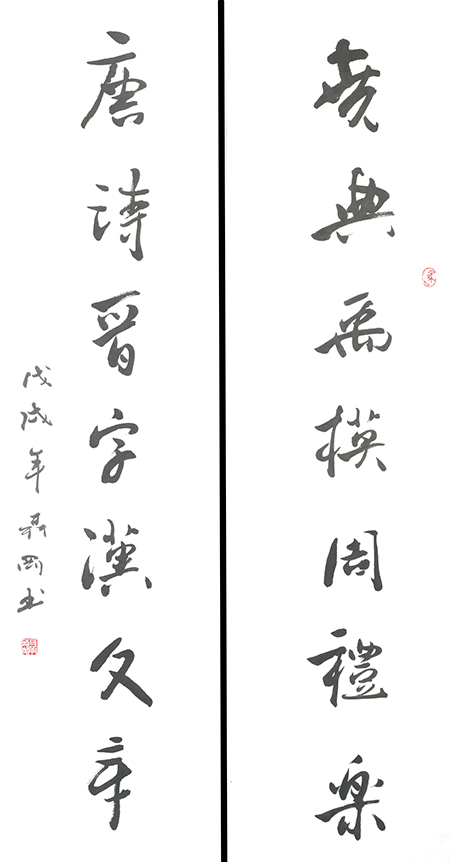 堯典禹模周禮樂
唐詩晉字漢文章
戊戌年聶岡書